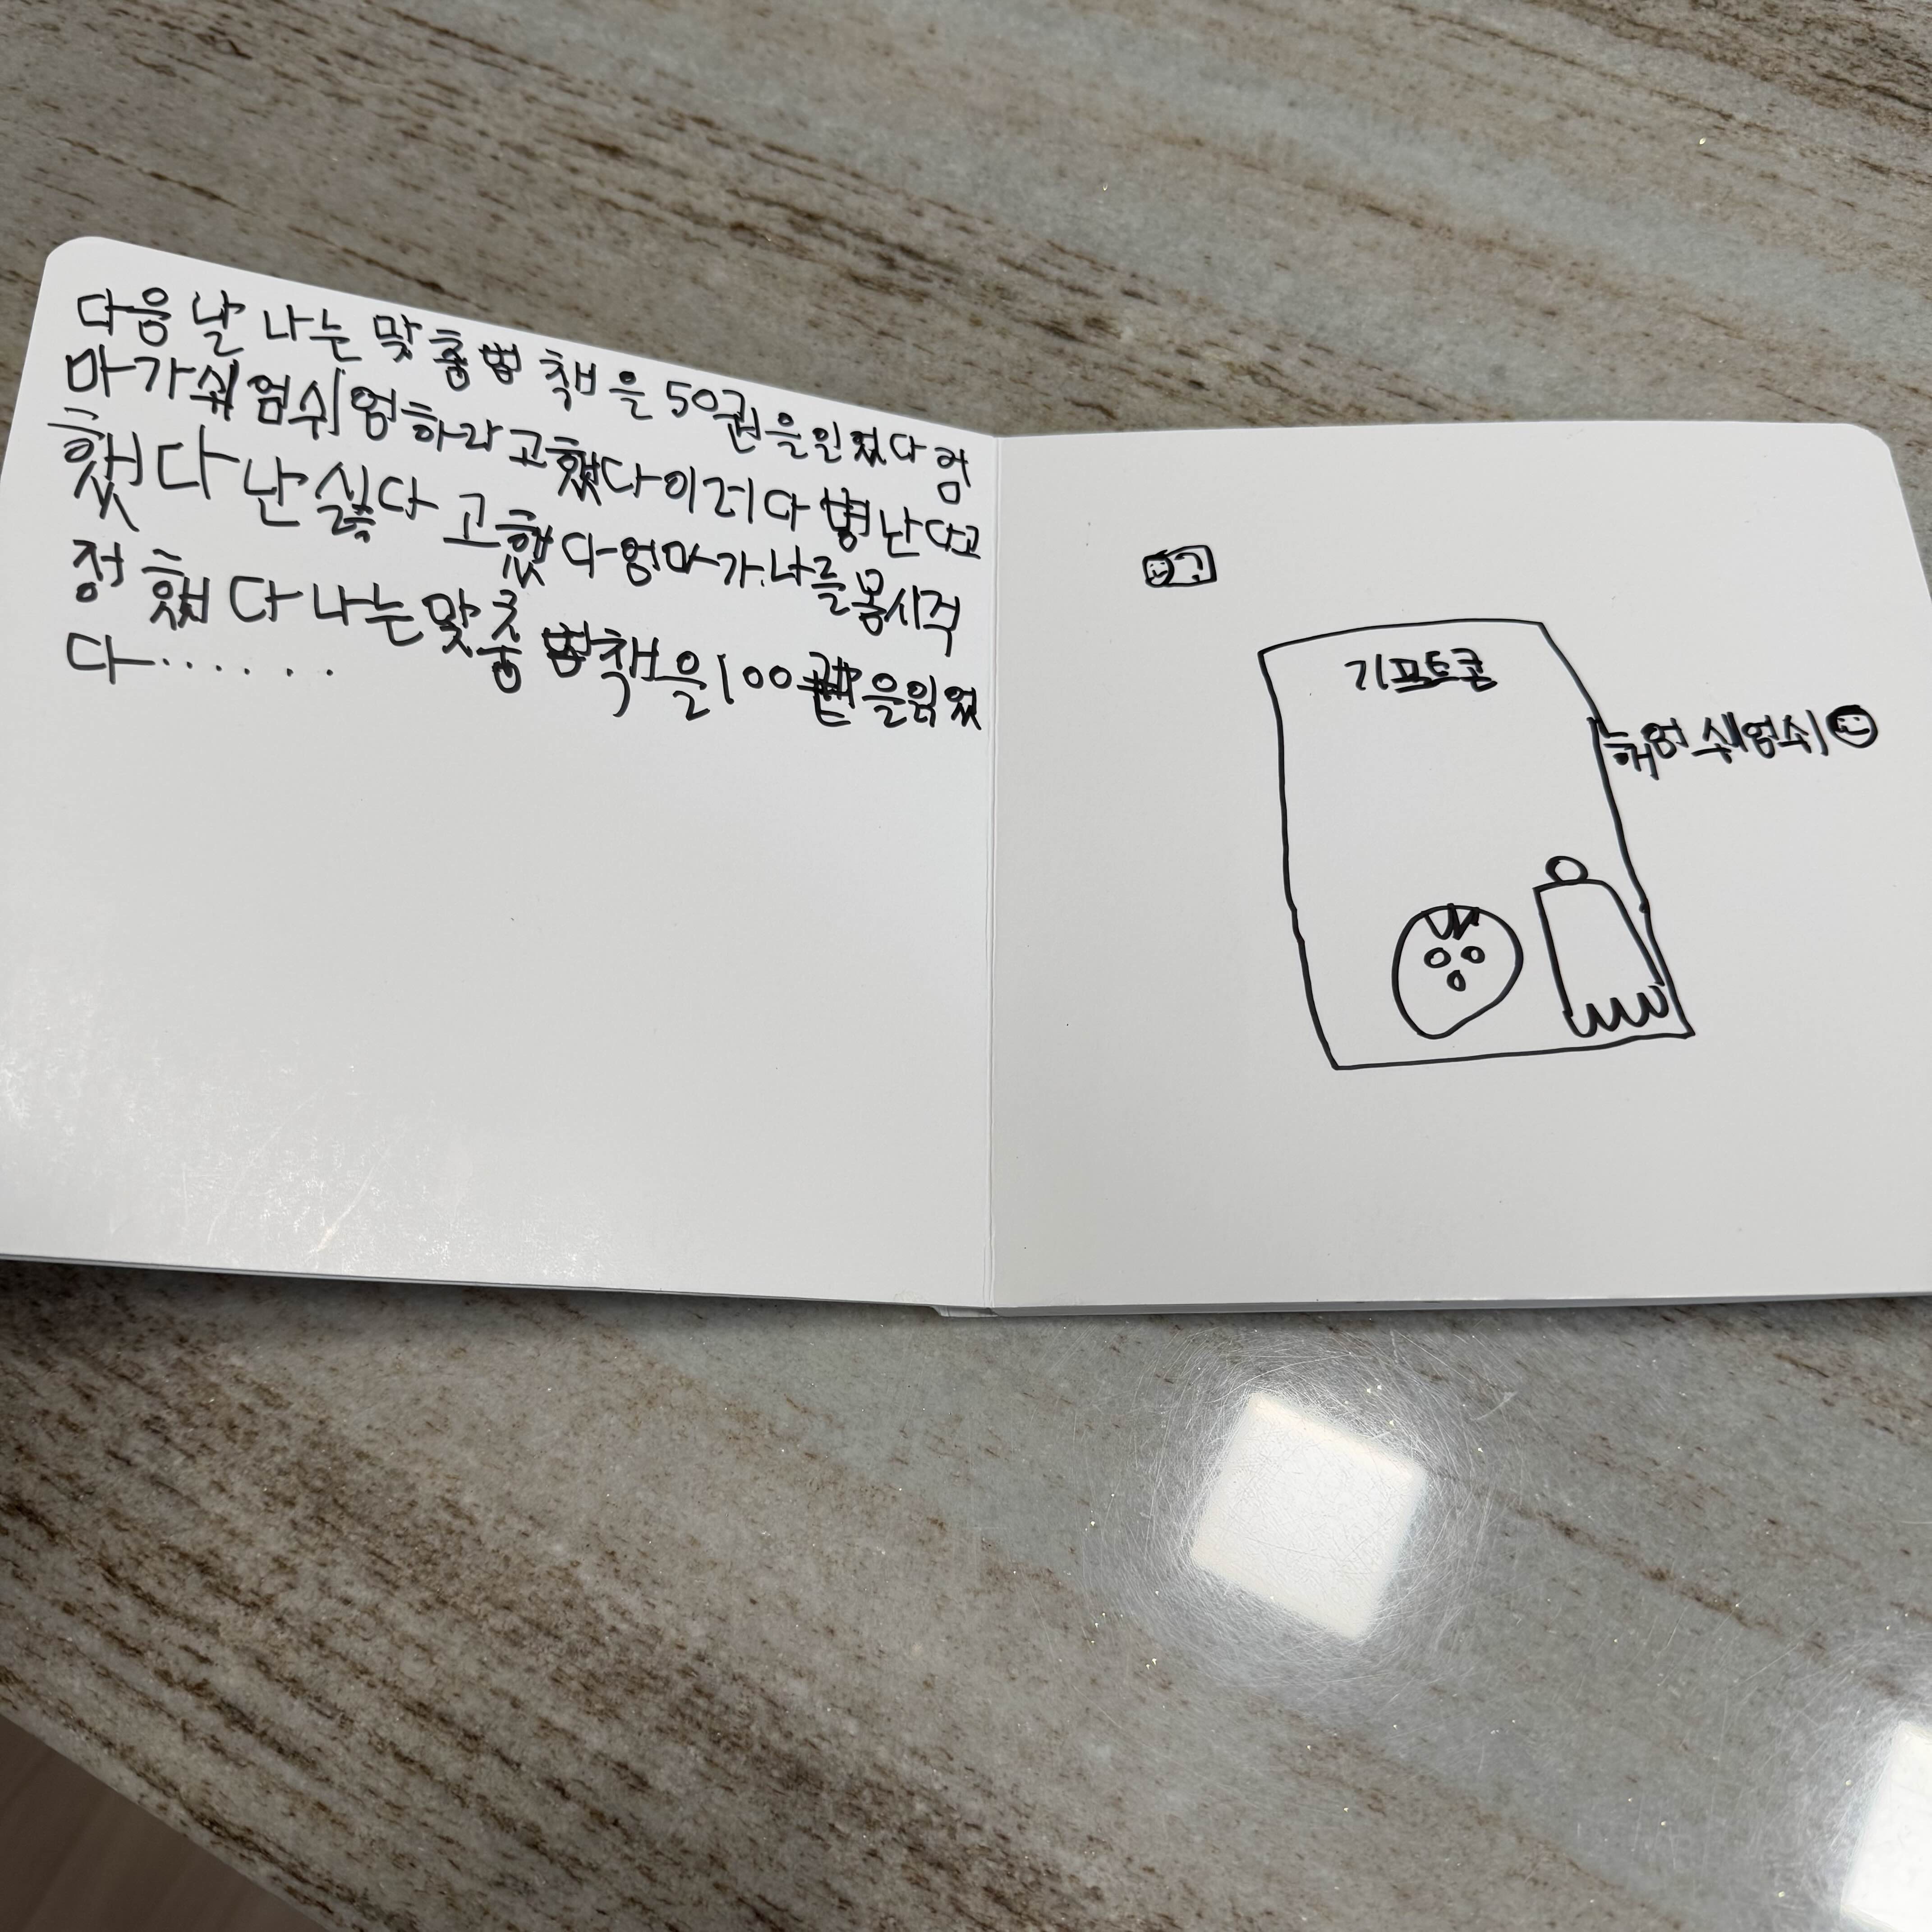 다음 날 나는 맞춤법 책을 50권을 읽었다 엄
마가 쉬엄쉬엄하라고했다 이러다 병난다고
했다 난 싫다고했다 엄마가 나를
정했다 나는 맞춤법책을 100권을읽었
다......
기프트콘
쉬엄쉬